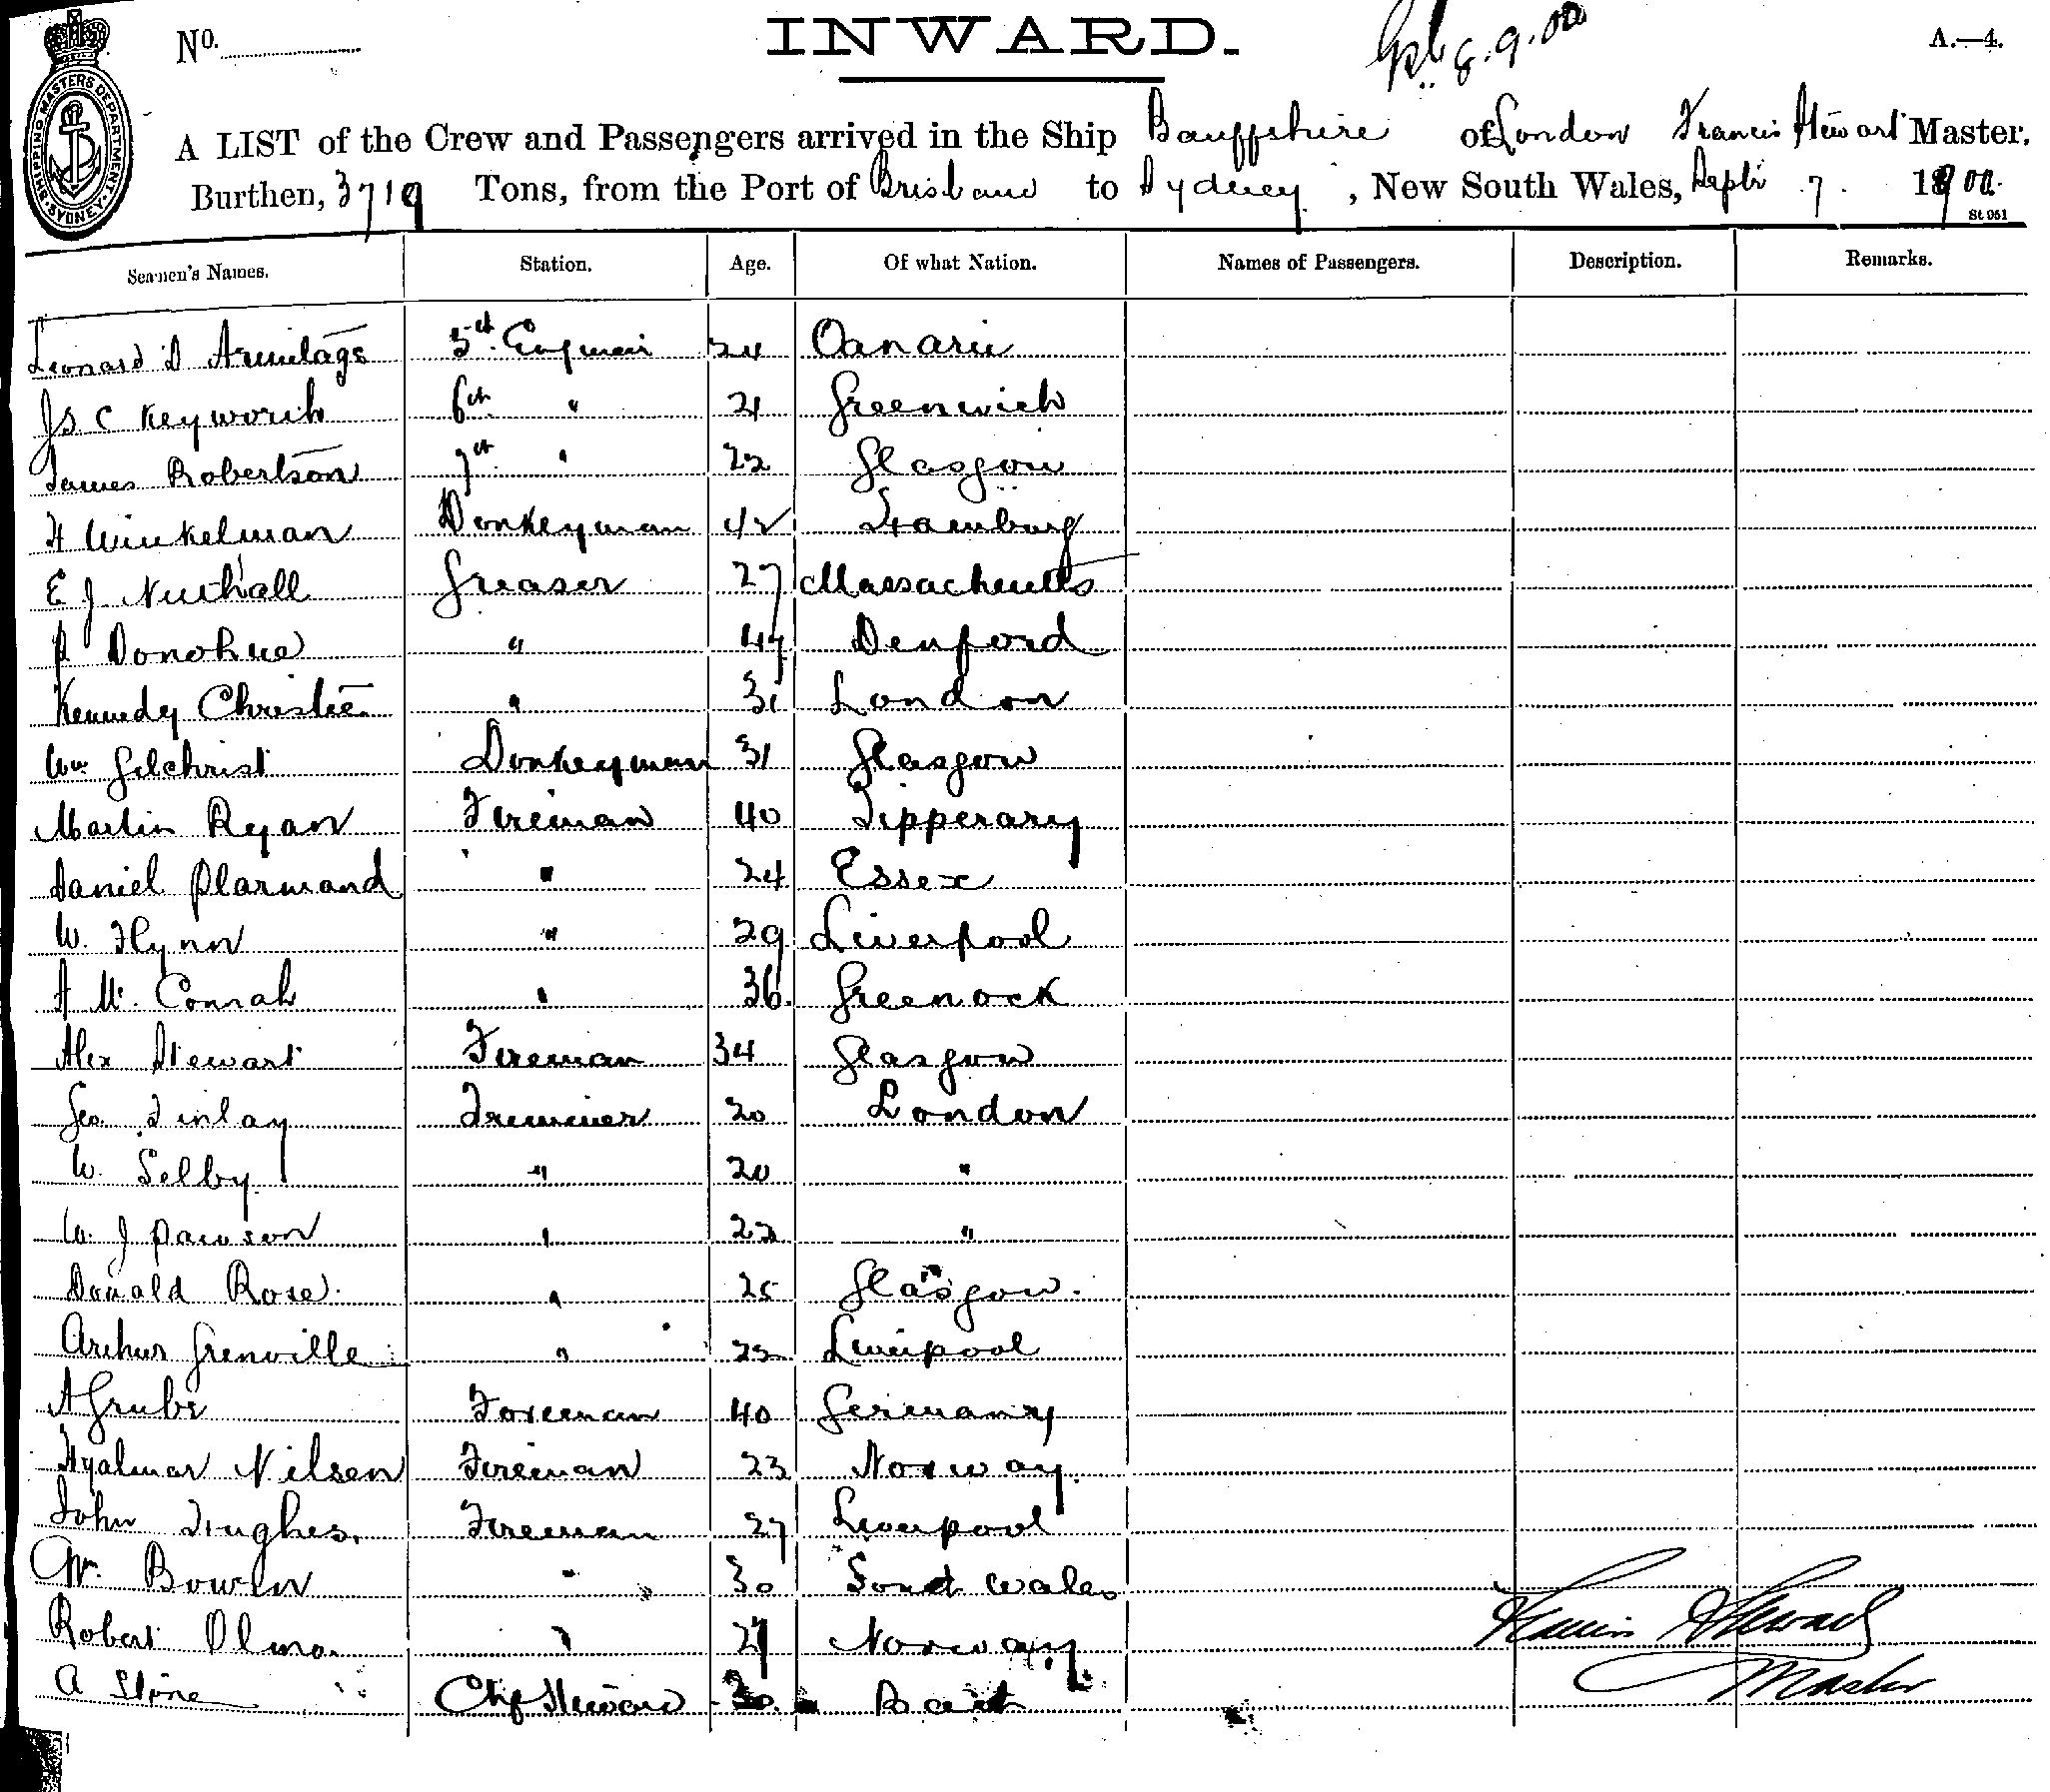 No. INWARD. 8.9.00 A.—4.
SHIPPING MASTERS DEPARTMENT SYDNEY
A LIST of the Crew and Passengers arrived in the Ship Banffshire of London Francis Stewart Master,
Burthen, 3719 Tons, from the Port of Brisbane to Sydney, New South Wales, Septr 7. 1900.
St 951
Seamen's Names. Station. Age. Of what Nation. Names of Passengers. Description. Remarks.
Leonard D Armitage 5th Engineer 24 Oamaru
Js C Keyworth 6th " 21 Greenwich
James Robertson 7th " 22 Glasgow
H Winkelman Donkeyman 42 Hamburg
E J Nuthall Greaser 27 Massachusetts
Donohue " 47 Denford
Kennedy Christie " 31 London
Wm Gilchrist Donkeyman 31 Glasgow
Martin Ryan Fireman 40 Tipperary
Daniel Plarmand " 24 Essex
W. Flynn " 29 Liverpool
Mc. Connah " 36. Greenock
Alex Stewart Fireman 34 Glasgow
Geo. Finlay Trimmer 20 London
W. Selby " 20 "
W. J Dawson " 22 "
Donald Rose. " 25 Glasgow.
Arthur Grenville " 22 Liverpool
A Grube Foreman 40 Germany
Hyalmar Nilsen Fireman 23 Norway.
John Hughes. Fireman 27 Liverpool
Wm. Bowen " 30 Wales
Robert Olmo. " 27 Norway
A Stone Chf Steward 30
Francis Stewart
Master